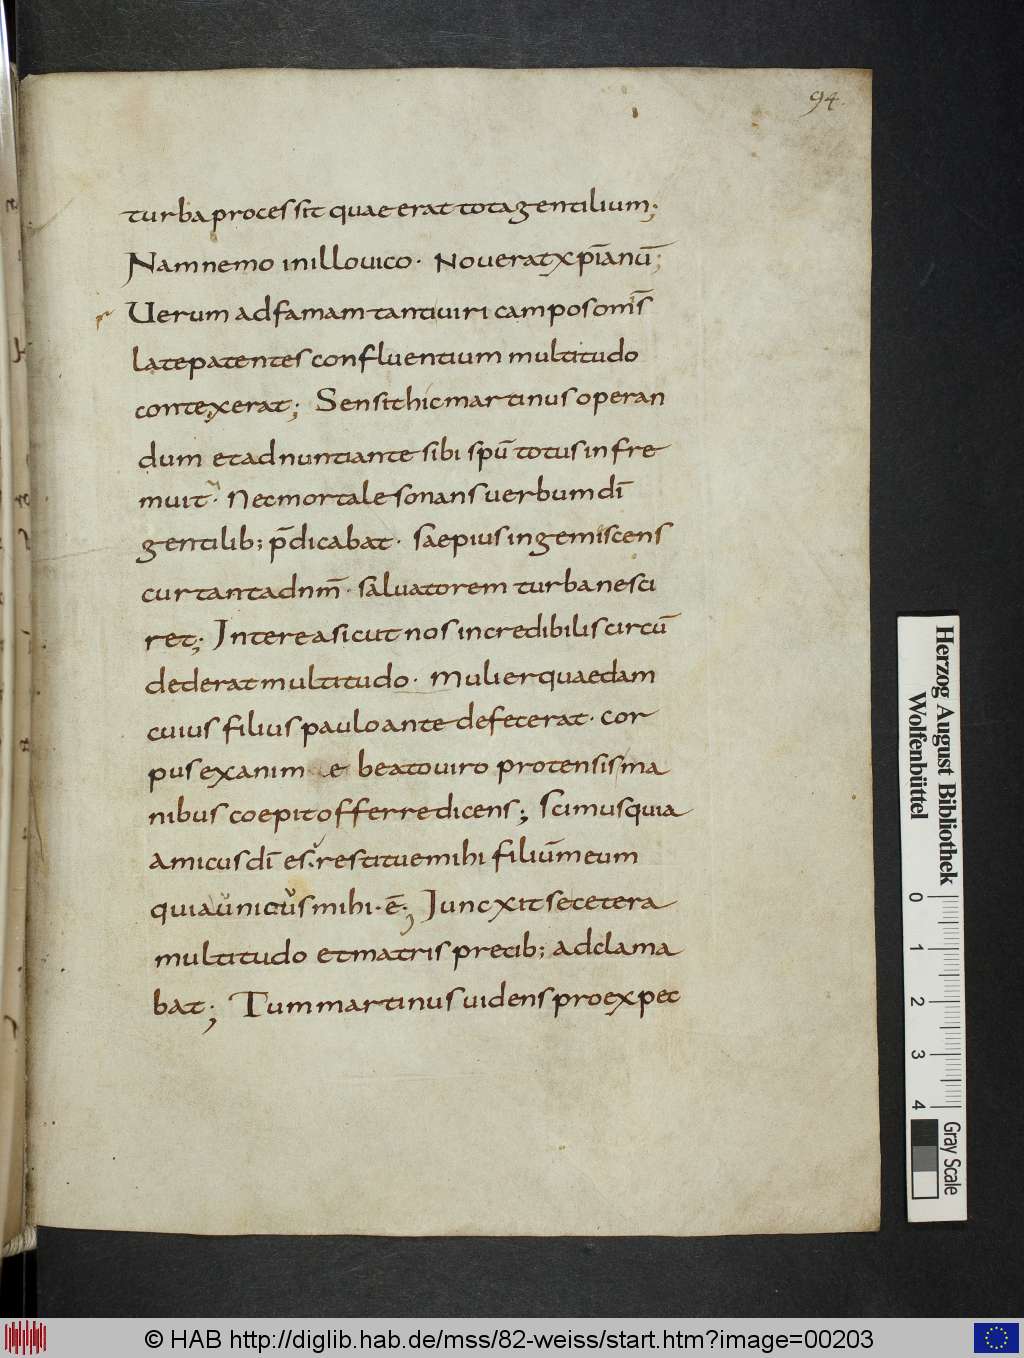 94.
turba processit quae erat tota gentilium;
Nam nemo in illo vico · Noverat xp̄ianū;
Uerum ad famam tanti viri campos om̄s
late patentes confluentium multitudo
contexerat; Sensit hic martinus operan
dum et adnuntiante sibi spū totus infre
muit · Nec mortale sonans verbum dī
gentilib; p̄dicabat · saepius ingemiscens
cur tanta dnm̄ · salvatorem turba nesci
ret; Interea sicut nos incredibilis circū
dederat multitudo · Mulier quaedam
cuius filius paulo ante defecerat · cor
pus exanime beato viro protensis ma
nibus coepit offerre dicens; Scimus quia
amicus dī es · restitue mihi filiūm eum
quia unicus mihi · ē; Junxit se cetera
multitudo et matris precib; adclama
bat; Tum martinus videns pro expec
Herzog August Bibliothek
Wolfenbüttel
0 1 2 3 4
Gray Scale
© HAB http://diglib.hab.de/mss/82-weiss/start.htm?image=00203